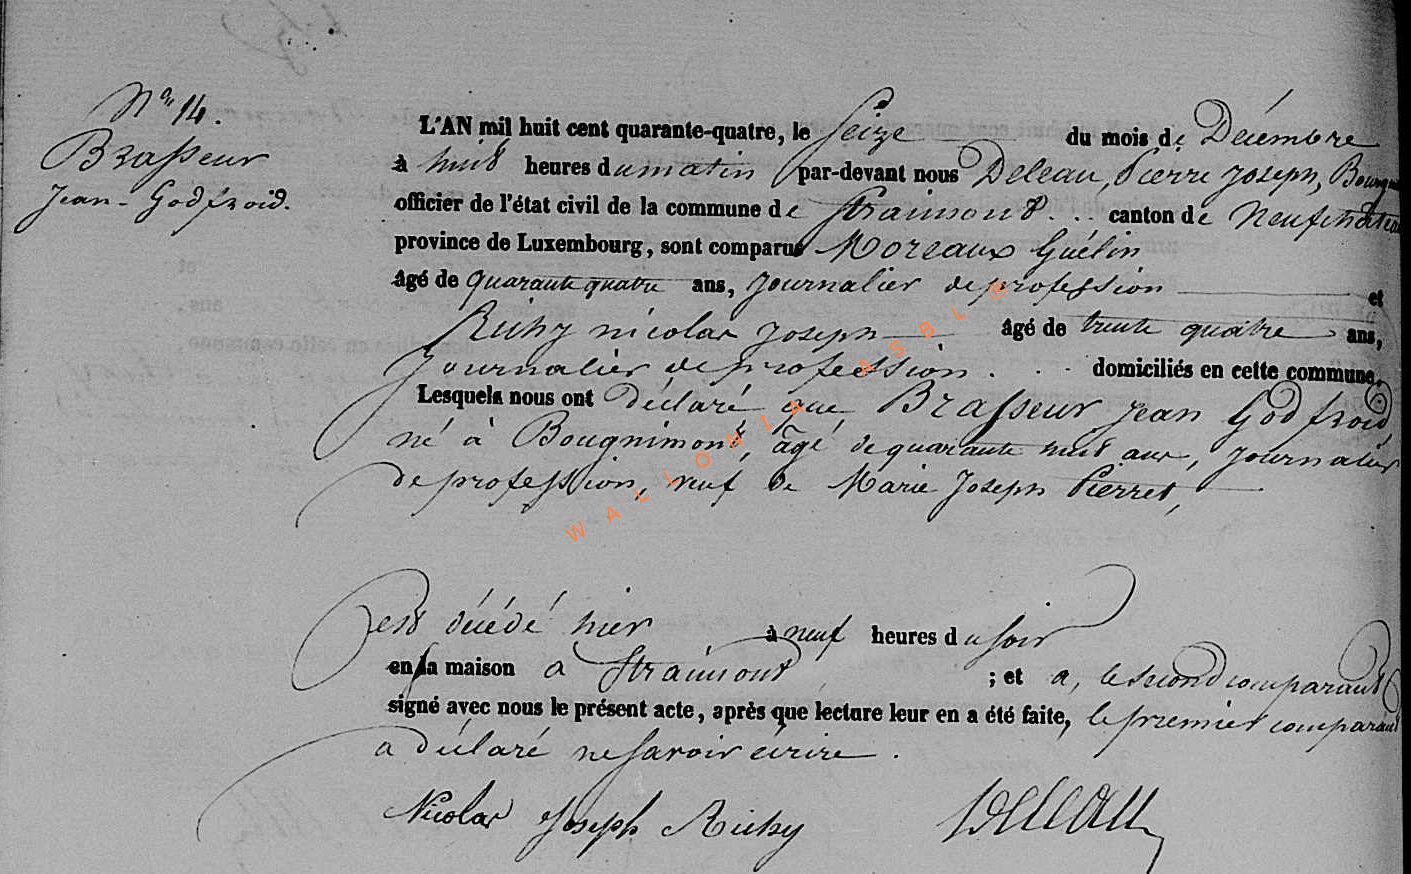 N° 14.
Brasseur
Jean-Godfroid.
L'AN mil huit cent quarante-quatre, le Seize du mois de Décembre
à huit heures du matin par-devant nous Deleau, Pierre Joseph,
officier de l'état civil de la commune de Straimont canton de Neufchâteau
province de Luxembourg, sont comparus Moreaux Guélin
âgé de quarante quatre ans, journalier de profession et
Richy nicolas joseph âgé de trente quatre ans,
journalier de profession. domiciliés en cette commune.
Lesquels nous ont Déclaré que Brasseur jean Godfroid,
né à Bougnimont, âgé de quarante huit ans, journalier
de profession, veuf de Marie Joseph Pierret,
est décédé hier à neuf heures du soir
en sa maison à Straimont ; et a, le second comparant
signé avec nous le présent acte, après que lecture leur en a été faite, le premier comparant
a déclaré ne savoir écrire.
Nicolas Joseph Richy Deleau
WALLONIA ASBL ©